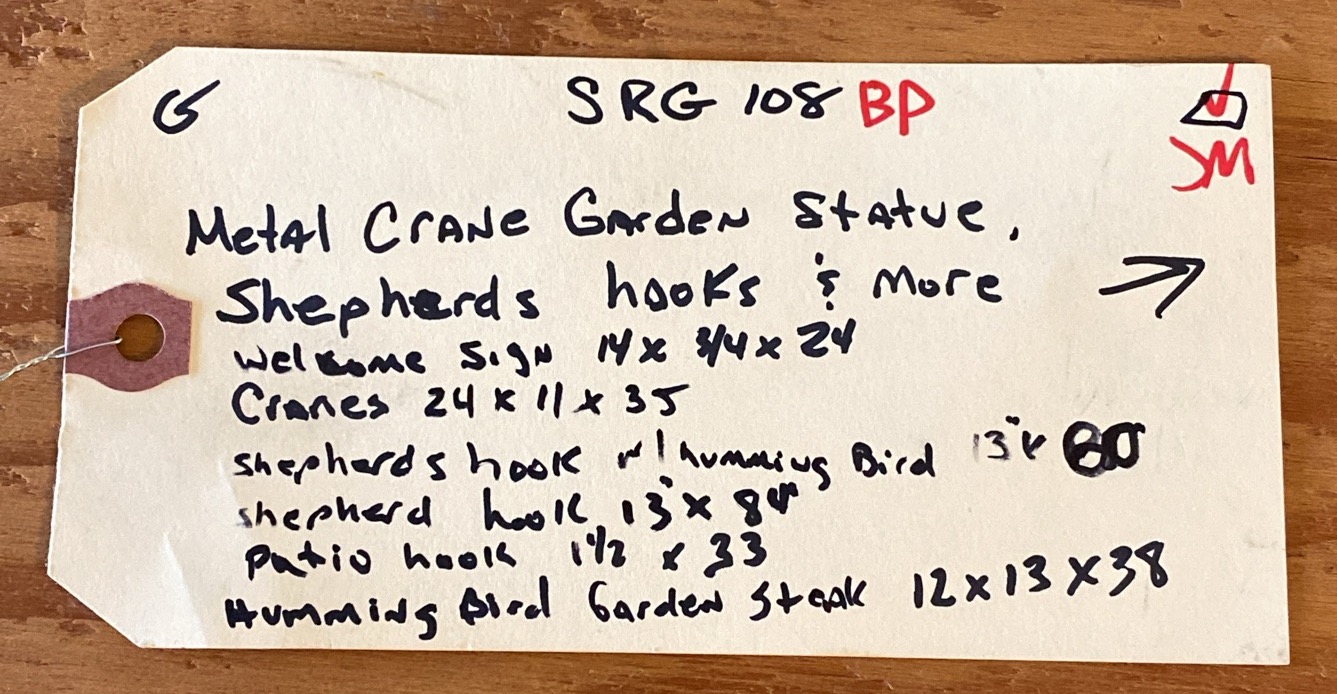 G SRG 108 BP
JM
Metal Crane Garden Statue,
Shepherds hooks & More
Welcome Sign 14 x 3/4 x 24
Cranes 24 x 11 x 35
shepherds hook w/ humming Bird 13" x 60
shepherd hook 13" x 84"
patio hook 1 1/2 x 33
Humming Bird Garden Steak 12 x 13 x 38